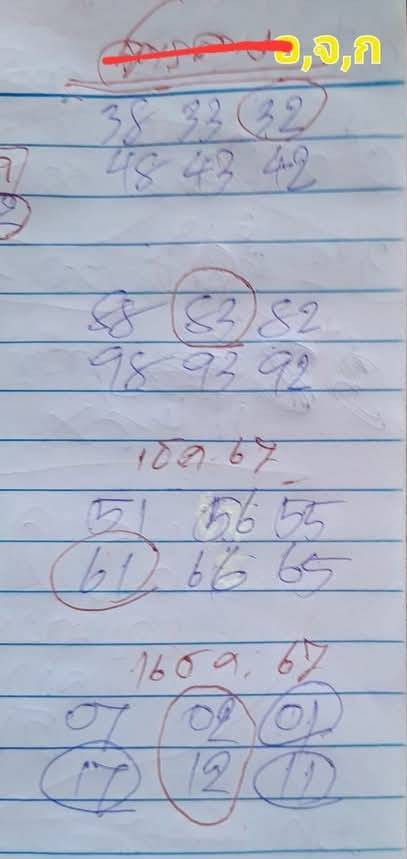 อ,จ,ก
38 33 32
48 43 42
58 83 82
98 93 92
1 ธ.ค. 67
51 56 55
61 66 65
16 ธ.ค. 67
07 02 01
17 12 11